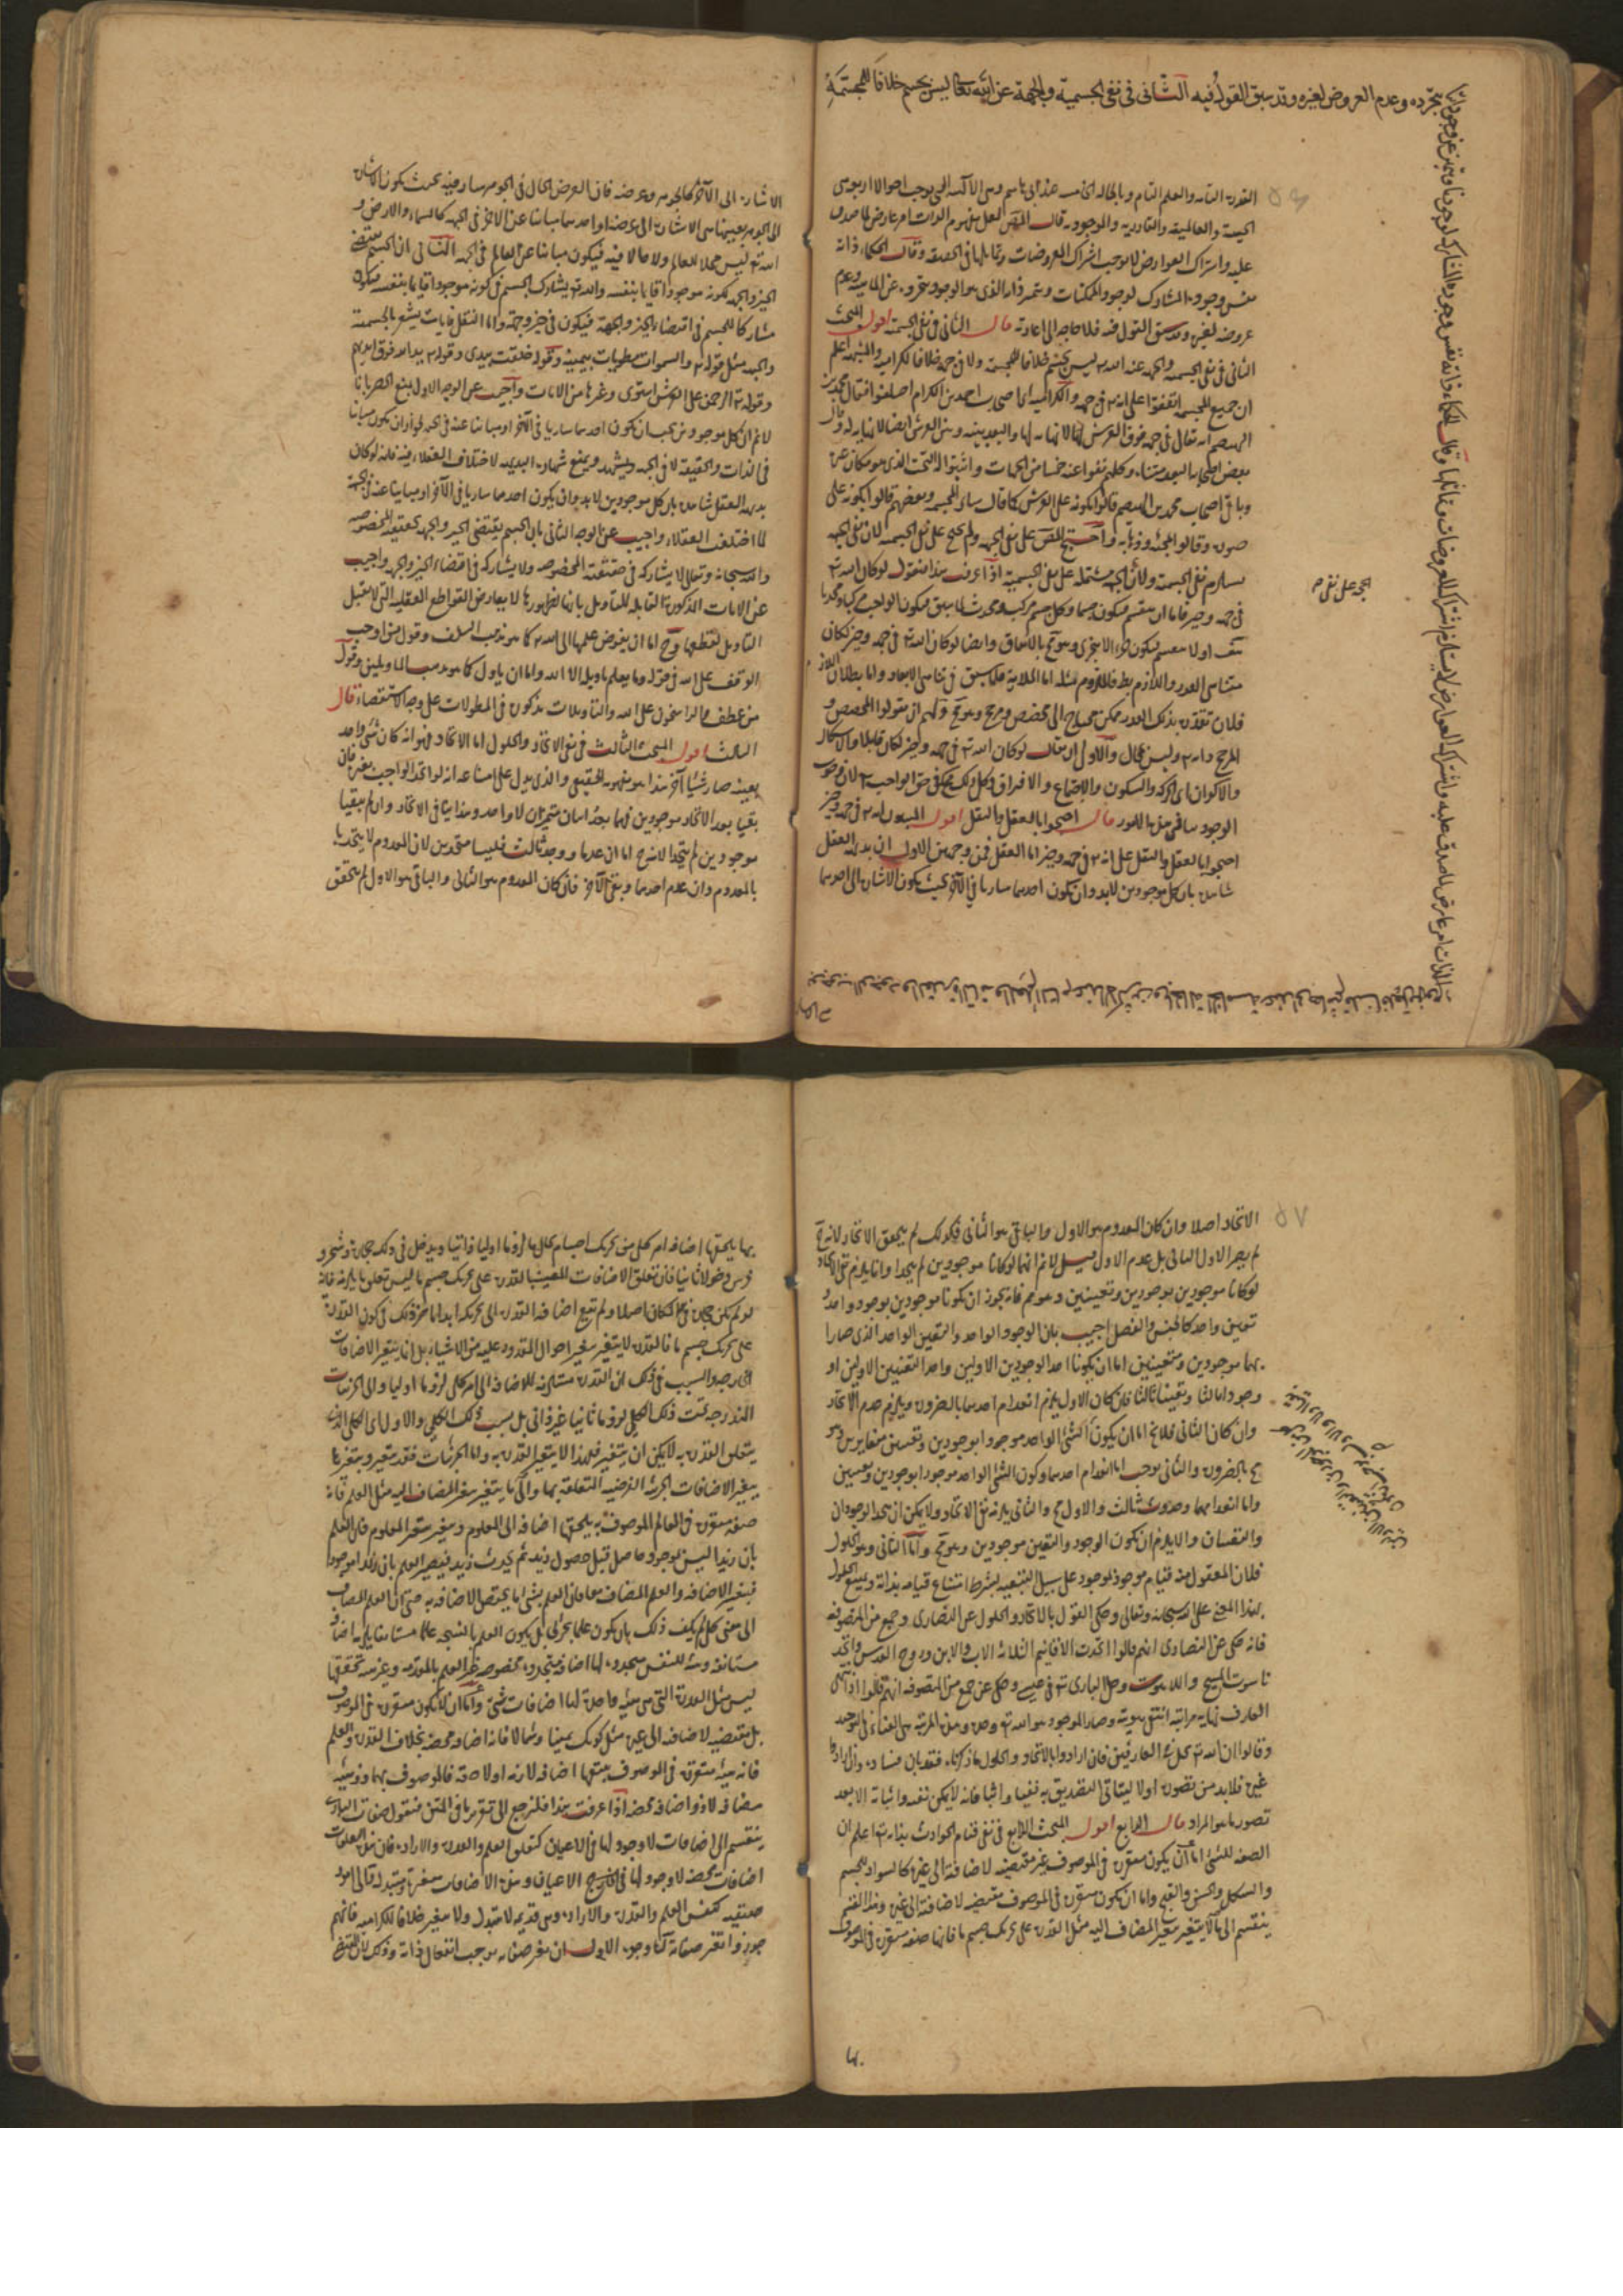 بتجرده وعدم العروض لغيره وقد سبق القول فيه الثاني في نفي الجسمية والجهة عن الله تعالى ليس بجسم خلافا للمجسمة
القدرة التامة والعلم التام وبالحالة الخامسة عند ابي هاشم وهي الالهية التي توجب احوالا اربع وهي
الحيية والعالمية والقادرية والموجودية قال المص لعل مفهوم الذات امر عارض لما صدق
عليه واشتراك العوارض لا يوجب اشتراك المعروضات وتماثلها في الحقيقة وقالت الحكماء ذاته
نفس وجوده المشارك لوجود الممكنات ويتميز ذاته الذي هو الوجود بتجرده عن الماهية وعدم
عروضه لغيره وقد سبق القول فيه فلا حاجة الى اعادته قال الثاني في نفي الجسمية اقول المبحث
الثاني في نفي الجسمية والجهة عنه الله تع ليس بجسم خلافا للمجسمة ولا في جهة خلافا للكرامية والمشبهة اعلم
ان جميع المجسمة اتفقوا على انه تع في جهة والكرامية اي اصحاب احمد بن الكرام اختلفوا فقال محمد بن
الهيصم انه تعالى في جهة فوق العرش لا نهاية لها والبعد بينه وبين العرش ايضا لا نهاية له وقال
بعض اصحابه البعد متناه وكلهم نفوا عنه خمسا من الجهات واثبتوا له التحت الذي هو مكان غيره
وباقي اصحاب محمد بن الهيصم قالوا بكونه على العرش كما قال سائر المجسمة وبعضهم قالوا بكونه على
صورة وقالوا بمجيئه وذهابه واحتج المص على نفي الجهة ولم يحتج على نفي الجسمية لان نفي الجهة
يستلزم نفي الجسمية ولان الجهة مشتملة على نفي الجسمية اذا عرفت هذا فنقول لو كان الله تع
في جهة وحيز فاما ان ينقسم فيكون جسما وكل جسم مركب ومحدث لما سبق فيكون الواجب مركبا ومحدثا
هف او لا ينقسم فيكون جزءا لا يتجزى وهو مح بالاتفاق وايضا لو كان الله تع في جهة وحيز لكان
متناهي القدر واللازم بط فالملزوم مثله اما الملازمة فلما سبق في تناهي الابعاد واما بطلان اللازم
فلان تقدره بذلك القدر ممكن محتاج الى مخصص ومرجح وهو مح ولهم ان يقولوا المخصص و
المرجح ذاته تع وليس بمحال والاولى ان يقال لو كان الله تع في جهة وحيز لكان قابلا والاشكال
والاكوان اي الحركة والسكون والاجتماع والافتراق وكل ذلك مح في حق الواجب تع لان وجوب
الوجود ينافي مثل هذه الامور قال احتجوا بالعقل والنقل اقول المثبتون له تع في جهة وحيز
احتجوا بالعقل والنقل على انه تع في جهة وحيز اما العقل فمن وجهين الاول ان بديهة العقل
شاهدة بان كل موجودين لابد وان يكون احدهما ساريا في الآخر بحيث يكون الاشارة الى احدهما
الاشارة الى الآخر كالجوهر وعرضه فان العرض الحال في الجوهر سار فيه بحيث يكون الاشارة
الى الجوهر بعينها هي الاشارة الى عرضه او احدهما مباينا عن الآخر في الجهة كالسماء والارض و
الله تع ليس محلا للعالم ولا حالا فيه فيكون مباينا عن العالم في الجهة الثاني ان الجسم يقتضي
الحيز والجهة لكونه موجودا قائما بنفسه والله تع يشارك الجسم في كونه موجودا قائما بنفسه فيكون
مشاركا للجسم في اقتضاء الحيز والجهة فيكون في حيز وجهة واما النقل فآيات يشعر بالجسمية
والجهة مثل قوله تع والسموات مطويات بيمينه وقوله خلقت بيدي وقوله تع يد الله فوق ايديهم
وقوله تع الرحمن على العرش استوى وغيرها من الايات واجيب عن الوجه الاول بمنع الحصر بانا
لا نم ان كل موجودين يجب ان يكون احدهما ساريا في الآخر او مباينا عنه في الجهة لجواز ان يكون مباينا
في الذات والحقيقة لا في الجهة ويشهد ويمنع شهادة البديهة لاختلاف العقلاء فيه فانه لو كان
بديهة العقل شاهدة بان كل موجودين لابد وان يكون احدهما ساريا في الآخر او مباينا عنه في الجهة
لما اختلفت العقلاء واجيب عن الوجه الثاني بان الجسم يقتضي الحيز والجهة بحقيقته المخصوصة
والله سبحانه وتعالى لا يشاركه في حقيقته المخصوصة ولا يشاركه في اقتضاء الحيز والجهة واجيب
عن الايات المذكورة القابلة للتأويل بانها لظهورها لا يعارض القواطع العقلية التي لا يقبل
التاويل لقطعها وح اما ان يفوض علمها الى الله تع كما هو مذهب السلف وقول من اوجب
الوقف على الله في قوله وما يعلم تاويله الا الله واما ان ياول كما هو مذهب الماولين وقول
من عطف والراسخون على الله والتاويلات مذكورة في المطولات على وجه الاستقصاء قال
الثالث اقول المبحث الثالث في نفي الاتحاد والحلول اما الاتحاد فهو انه كان شئ واحد
بعينه صار شيئا آخر هذا هو مفهومه الحقيقي والذي يدل على امتناعه انه لو اتحد الواجب بغيره فان
بقيا بعد الاتحاد موجودين فهما بعد اثنان متميزان لا واحد وهذا ينافي الاتحاد وان لم يبقيا
موجودين لم يتحدا لانه ح اما ان عدما ووجد ثالث فليسا متحدين لان المعدوم لا يتحد
بالمعدوم وان عدم احدهما وبقي الآخر فان كان المعدوم هو الثاني والباقي هو الاول لم يتحقق
الاتحاد اصلا وان كان المعدوم هو الاول والباقي هو الثاني فكذلك لم يتحقق الاتحاد لانه ح
لم يصر الاول الثاني بل عدم الاول قيل لا نم انهما لو كانا موجودين لم يتحدا وانما يلزم نفي الاتحاد
لو كانا موجودين بوجودين وتعينين وهو مم فانه يجوز ان يكونا موجودين بوجود واحد و
تعين واحد كالجنس والفصل اجيب بان الوجود الواحد والتعين الواحد الذي صارا
بهما موجودين ومتعينين اما ان يكونا احد الوجودين الاولين واحد التعينين الاولين او
وجودا ثالثا وتعينا ثالثا فان كان الاول يلزم انعدام احدهما بالضرورة ويلزم عدم الاتحاد
وان كان الثاني فلا يخ اما ان يكون الشئ الواحد موجودا بوجودين وتعينين متغايرين وهو
مح بالضرورة والثاني يوجب اما انعدام احدهما وكون الشئ الواحد موجودا بوجودين وتعينين
واما انعدامهما وحدوث ثالث والاول مح والثاني يلزمه نفي الاتحاد ولا يمكن ان يتحد الوجودان
والتعينان والا يلزم ان يكون الوجود والتعين موجودين وهو مح واما الثاني وهو الحلول
فلان المعقول منه قيام موجود بموجود على سبيل التبعية بشرط امتناع قيامه بذاته ويمتنع الحلول
بهذا المعنى على الله سبحانه وتعالى وحكي القول بالاتحاد والحلول عن النصارى وجمع من المتصوفة
فانه حكى عن النصارى انهم قالوا اتحدت الاقانيم الثلاثة الاب والابن وروح القدس واتحد
ناسوت المسيح واللاهوت وحل الباري تع في عيسى وحكي عن جمع من المتصوفة انهم قالوا اذا انتهى
العارف نهاية مراتبه انتفى هويته وصار الموجود هو الله تع وحده وهذه المرتبة هي الفناء في التوحيد
وقالوا ان الله تع يحل في العارفين فان ارادوا بالاتحاد والحلول ما ذكرناه فقد بان فساده وان ارادوا
غيره فلابد من تصوره اولا ليتأتى التصديق به نفيا واثباتا فانه لا يمكن نفيه واثباته الا بعد
تصور ما هو المراد قال الرابع اقول المبحث الرابع في نفي قيام الحوادث بذاته تع اعلم ان
الصفة للشئ اما ان يكون متقررة في الموصوف غير مقتضية لاضافة الى غيره كالسواد للجسم
والشكل والحسن والقبح واما ان يكون متقررة في الموصوف مقتضية لاضافته الى غيره وهذا القسم
ينقسم الى ما لا يتغير بتغير المضاف اليه مثل القدرة على تحريك جسم ما فانها صفة متقررة في الموصوف
بها يلحقها اضافة امر كلي من تحريك اجسام بحال ما لزوما اوليا ذاتيا ويدخل في ذلك حجارة وشجر و
فرس دخولا ثانيا فان تعلق الاضافات المعينة بالقدرة على تحريك جسم ما ليس تعلق ما يلزمه فانه
لو لم يكن حجارة في الامكان اصلا ولم تقع اضافة القدرة الى تحريكه ابدا ما ضره ذلك في كون القدرة
على تحريك جسم ما فالقدرة لا يتغير بتغير احوال المقدور عليه من الاشياء بل انما يتغير الاضافات
الخارجية والسبب في ذلك ان القدرة مستلزمة للاضافة الى امر كلي لزوما اوليا والى الجزئيات
المندرجة تحت ذلك الكلي لزوما ثانيا غير ذاتي بل بسبب ذلك الكلي والاول اي الكلي الذي
يتعلق القدرة به لا يمكن ان يتغير فلهذا لا يتغير القدرة به واما الجزئيات فقد يتغير وبتغيرها
يتغير الاضافات الجزئية العرضية المتعلقة بها والى ما يتغير بتغير المضاف اليه مثل العلم فانه
صفة متقررة في العالم الموصوف به يلحقها اضافة الى المعلوم ويتغير بتغير المعلوم فان العلم
بان زيدا ليس بموجود حاصل قبل حصول زيد ثم يحدث زيد فيصير العلم بان زيدا موجود
فيتغير الاضافة والعلم المضاف معا فان العلم بشئ ما يختص الاضافة به حتى ان العلم المضاف
الى معنى كلي لم يكف ذلك بان يكون علما بجزئي بل يكون العلم بالنتيجة علما مستأنفا يلزمه اضافة
مستأنفة وهيئة للنفس متجددة لها اضافة متجددة مخصوصة غير العلم بالمقدمة وغير هيئة تحققها
ليس مثل القدرة التي هي هيئة واحدة لها اضافات شتى واما ان لا يكون متقررة في الموصوف
بل مقتضية لاضافة الى غيره مثل كونك يمينا وشمالا فانه اضافة محضة بخلاف القدرة والعلم
فانه هيئة متقررة في الموصوف يتبعها اضافة لازمة او لاحقة فالموصوف بهما ذو هيئة
مضافة لا ذو اضافة محضة اذا عرفت هذا فلنرجع الى تقرير ما في المتن فنقول صفات الباري
ينقسم الى اضافات لا وجود لها في الاعيان كتعلق العلم والقدرة والارادة فان هذه التعلقات
اضافات محضة لا وجود لها في الاعيان وهذه الاضافات متغيرة ومتبدلة والى امور
حقيقية كنفس العلم والقدرة والارادة وهي قديمة لا يتبدل ولا يتغير خلافا للكرامية فانهم
جوزوا تغير صفاته لنا وجوه الاول ان تغير صفاته يوجب انفعال ذاته وذلك لان المقتضي